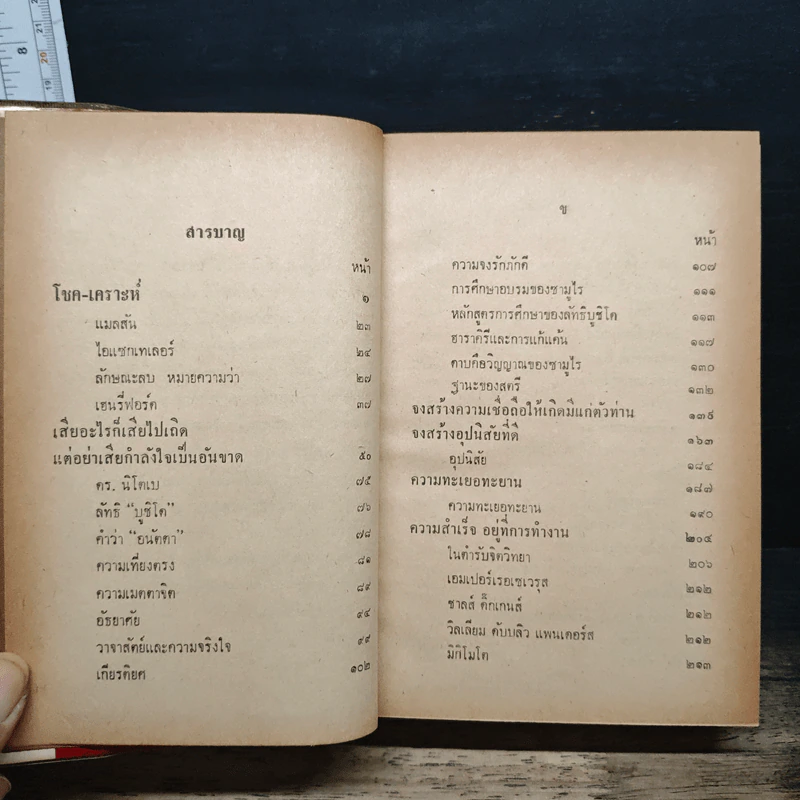 สารบาญ
หน้า
โชค-เคราะห์ ๑
แมลสัน ๒๓
ไอแซกเทเลอร์ ๒๔
ลักษณะลบ หมายความว่า ๒๗
เฮนรี่ฟอร์ด ๓๗
เสียอะไรก็เสียไปเถิด
แต่อย่าเสียกำลังใจเป็นอันขาด ๕๐
ดร. นิโตเบ ๗๕
ลัทธิ "บูชิโด" ๗๖
คำว่า "อนัตตา" ๗๘
ความเที่ยงตรง ๘๑
ความเมตตาจิต ๘๙
อัธยาศัย ๙๔
วาจาสัตย์และความจริงใจ ๙๙
เกียรติยศ ๑๐๒
ข
หน้า
ความจงรักภักดี ๑๐๗
การศึกษาอบรมของซามูไร ๑๑๑
หลักสูตรการศึกษาของลัทธิบูชิโด ๑๑๓
ฮาราคิรีและการแก้แค้น ๑๑๗
ดาบคือวิญญาณของซามูไร ๑๓๐
ฐานะของสตรี ๑๓๒
จงสร้างความเชื่อถือให้เกิดมีแก่ตัวท่าน ๑๓๕
จงสร้างอุปนิสัยที่ดี ๑๖๓
อุปนิสัย ๑๘๔
ความทะเยอทะยาน ๑๘๗
ความทะเยอทะยาน ๑๙๐
ความสำเร็จ อยู่ที่การทำงาน ๒๐๕
ในตำรับจิตวิทยา ๒๐๖
เอมเปอร์เรอเซเวรุส ๒๑๒
ชาลส์ ดิ๊กเกนส์ ๒๑๒
วิลเลียม ดับบลิว แพนเดอร์ส ๒๑๒
มิกิโมโต ๒๑๓
8
21
20
19